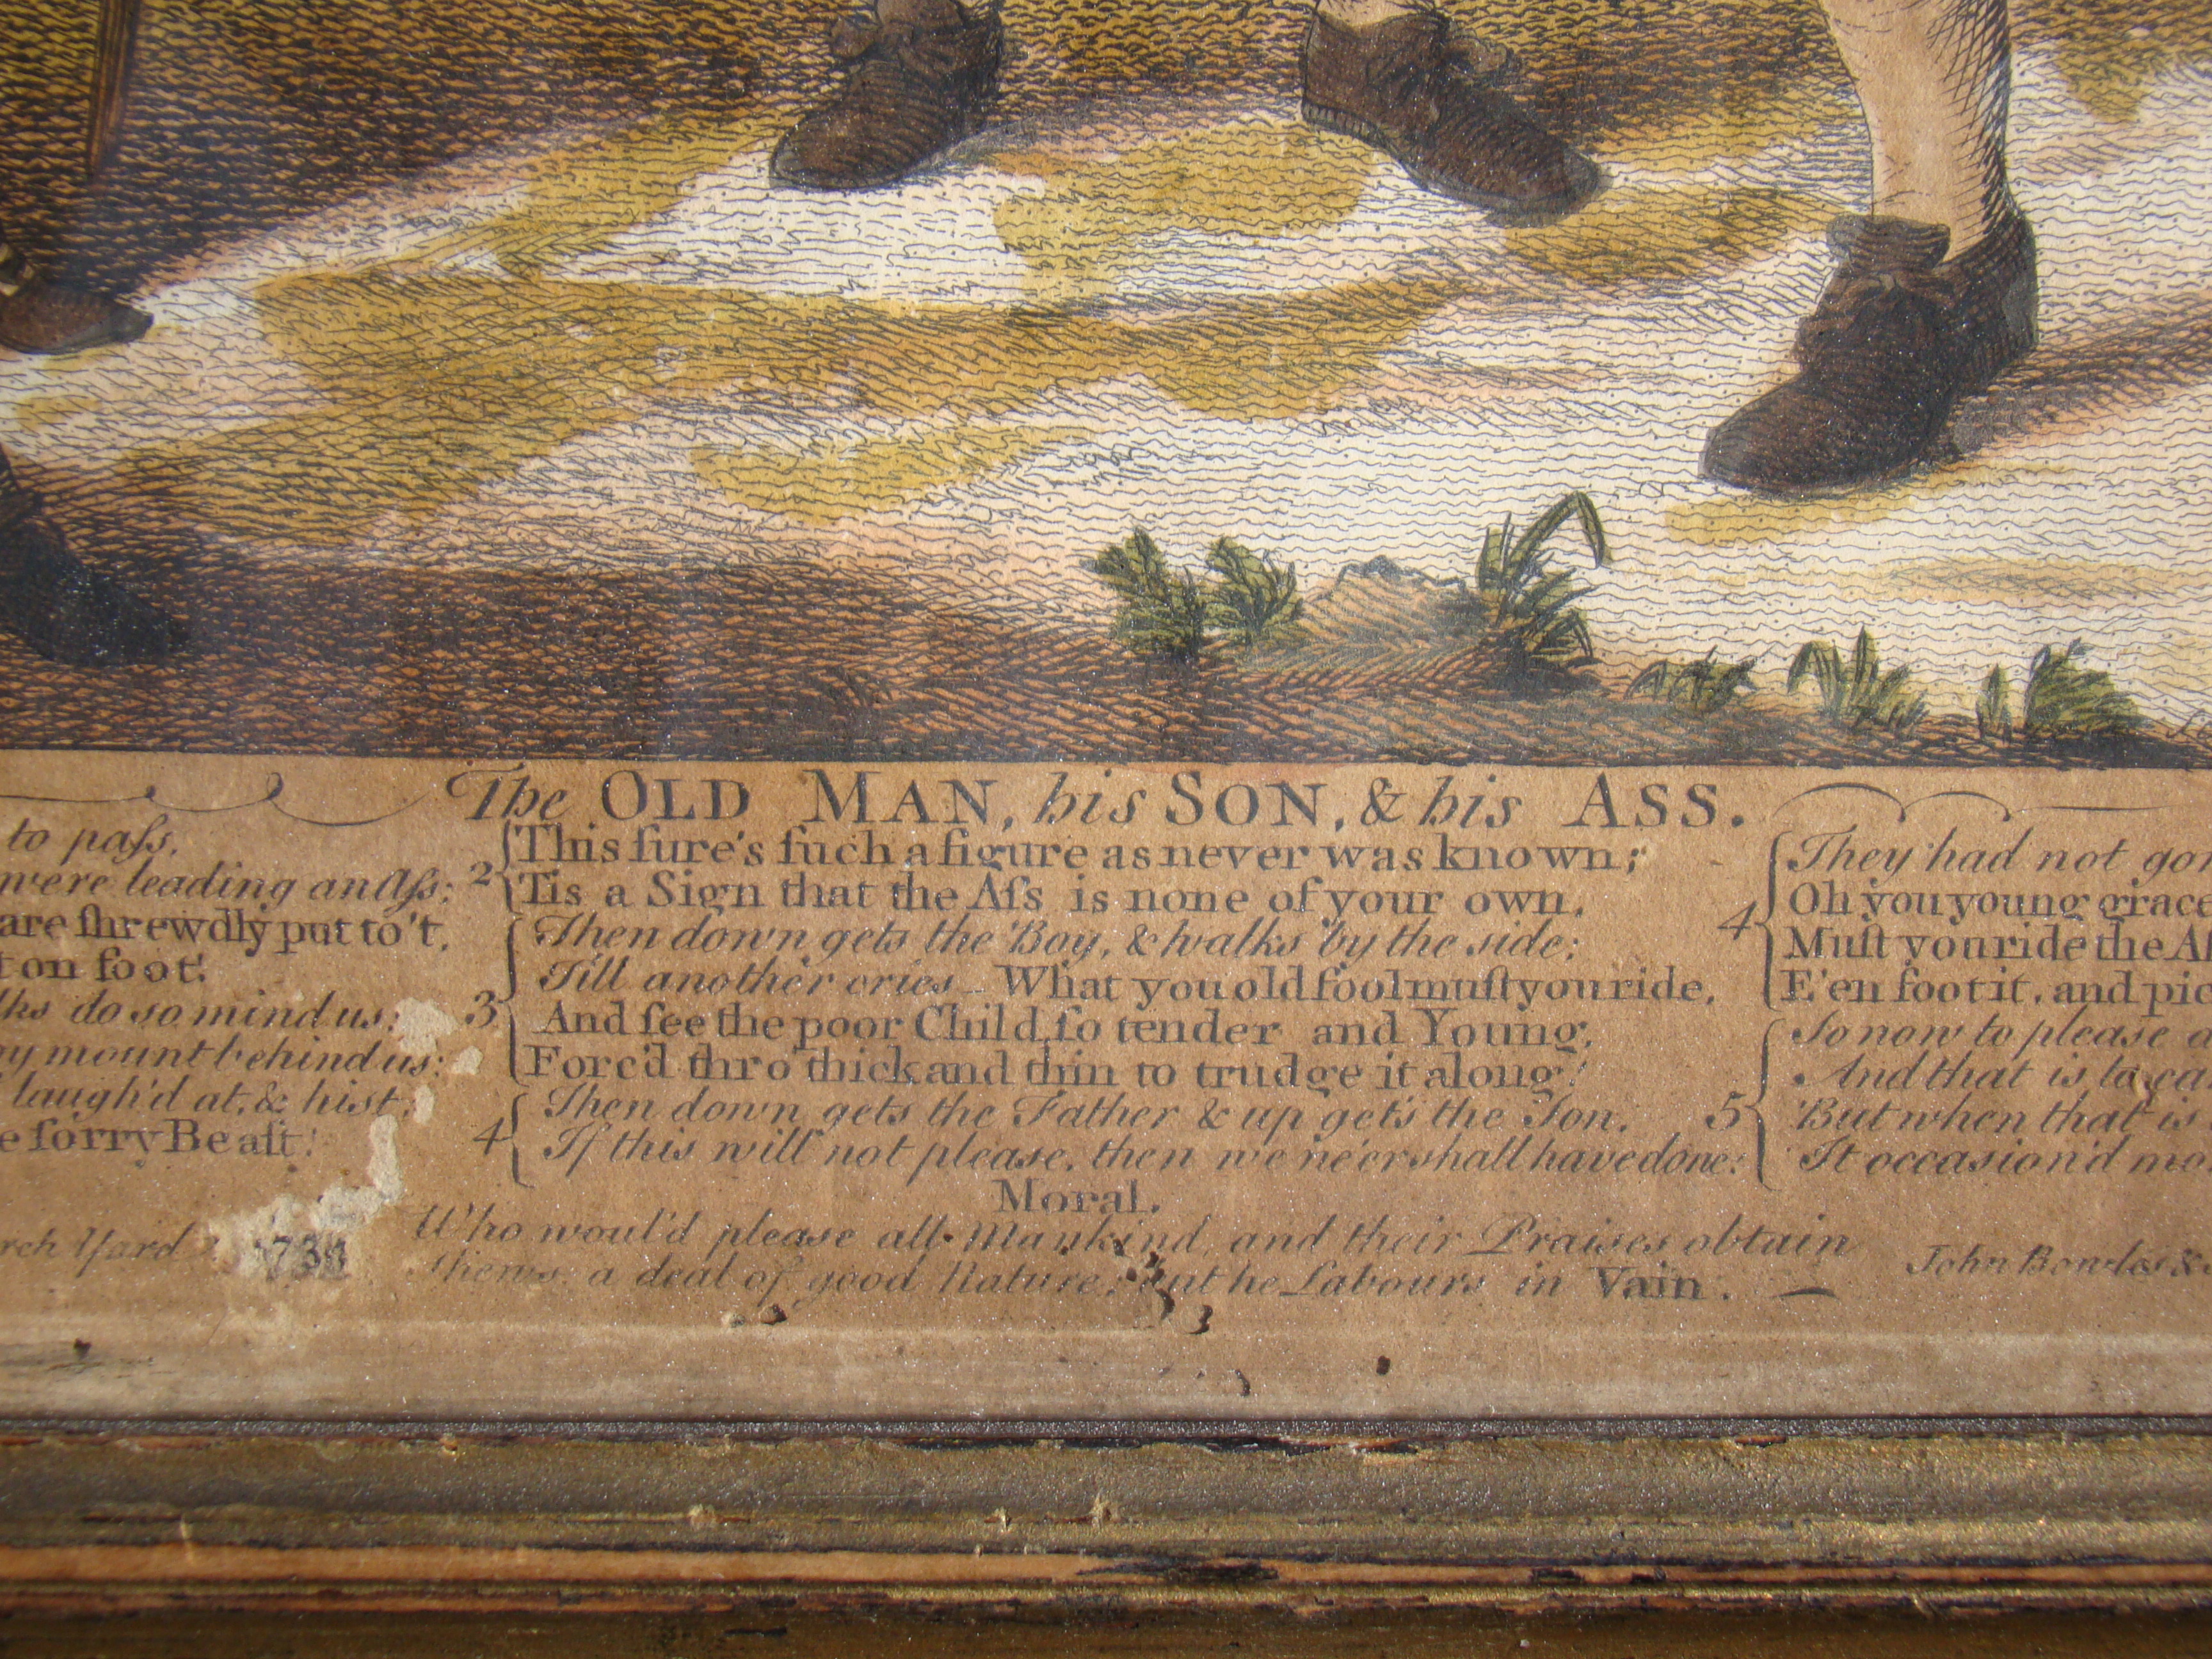 The OLD MAN, his SON, & his ASS.
to paſs,
were leading an Aſs:
are ſhrewdly put to't,
on foot!
lks do so mind us:
ny mount behind us:
laugh'd at, & hist,
e ſorry Beaſt!
2
This ſure's ſuch a figure as never was known;
Tis a Sign that the Aſs is none of your own.
3
Then down gets the Boy, & walks by the side;
Till another cries – What you old fool muſt you ride,
And ſee the poor Child, ſo tender and Young,
Forc'd thro' thick and thin to trudge it along!
4
Then down gets the Father & up gets the Son.
If this will not please, then we ne'er shall have done:
4
They had not go
Oh you young grace
Muſt you ride the Aſ
E'en foot it, and pic
5
So now to please
And that is to
But when that is
It occasion'd mo
Moral.
Who would please all Mankind, and their Praises obtain
Shews a deal of good Nature; but he Labours in Vain.
rch Yard
John Bowles &